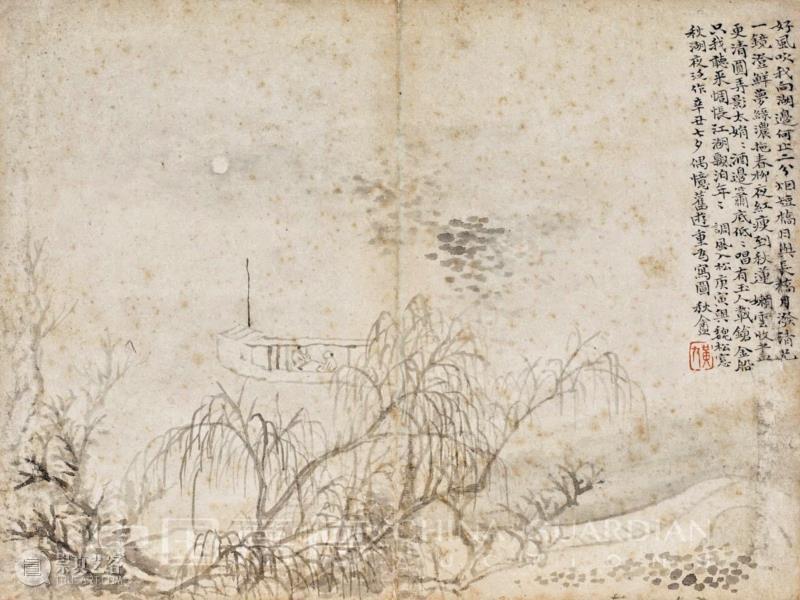 好風吹我向湖邊何止二分烟短橋月與長橋月潑清光
一鏡澄鮮夢綠濃拖春柳夜紅瘦到秋蓮 嬾雲收盡
更清圓弄影太娟〻酒邊簫底低〻唱有玉人載鎗金船
只我聽來惆悵江湖飄泊年〻 調風入松庚寅與魏松窓
秋湖夜泛作辛丑七夕偶憶舊遊重為寫圖秋盦
黃九
中国嘉德 CHINA GUARDIAN
崇真艺客
TRUEART.COM